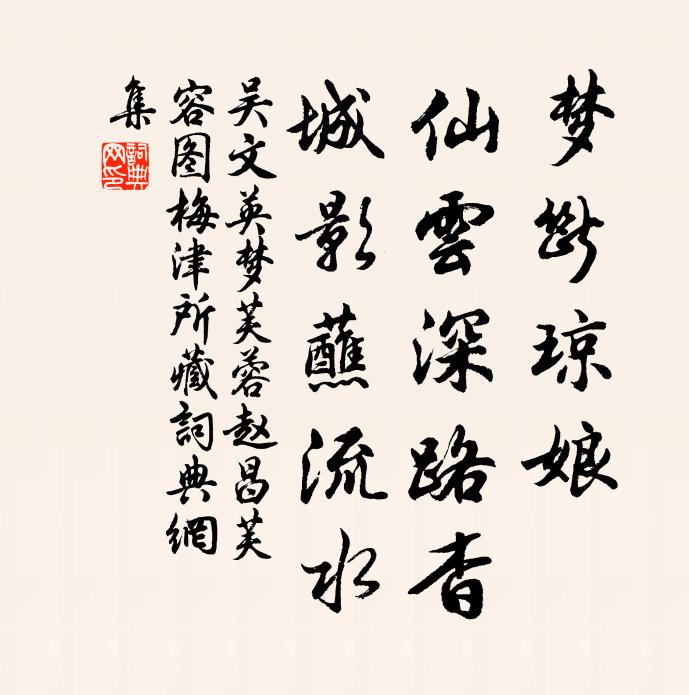 梦断琼娘
仙雲深路杳
城影蘸流水
吴文英梦芙蓉赵昌芙
容图梅津所藏詞典網
集
詞典網印